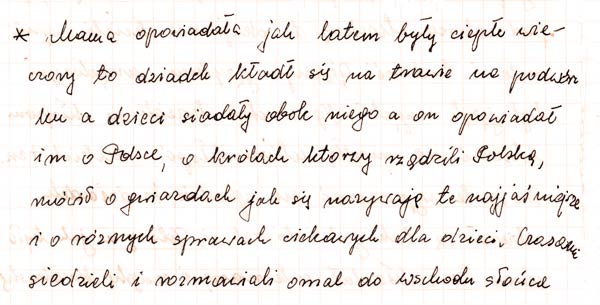 * Mama opowiadała jak latem były ciepłe wie-
czory to dziadek kładł się na trawie na podwór
ku a dzieci siadały obok niego a on opowiadał
im o Polsce, o królach ktorzy rządzili Polską,
mówił o gwiazdach jak się nazywają te najjaśniejsze
i o różnych sprawach ciekawych dla dzieci. Czasami
siedzieli i rozmawiali omal do wschodu słońca